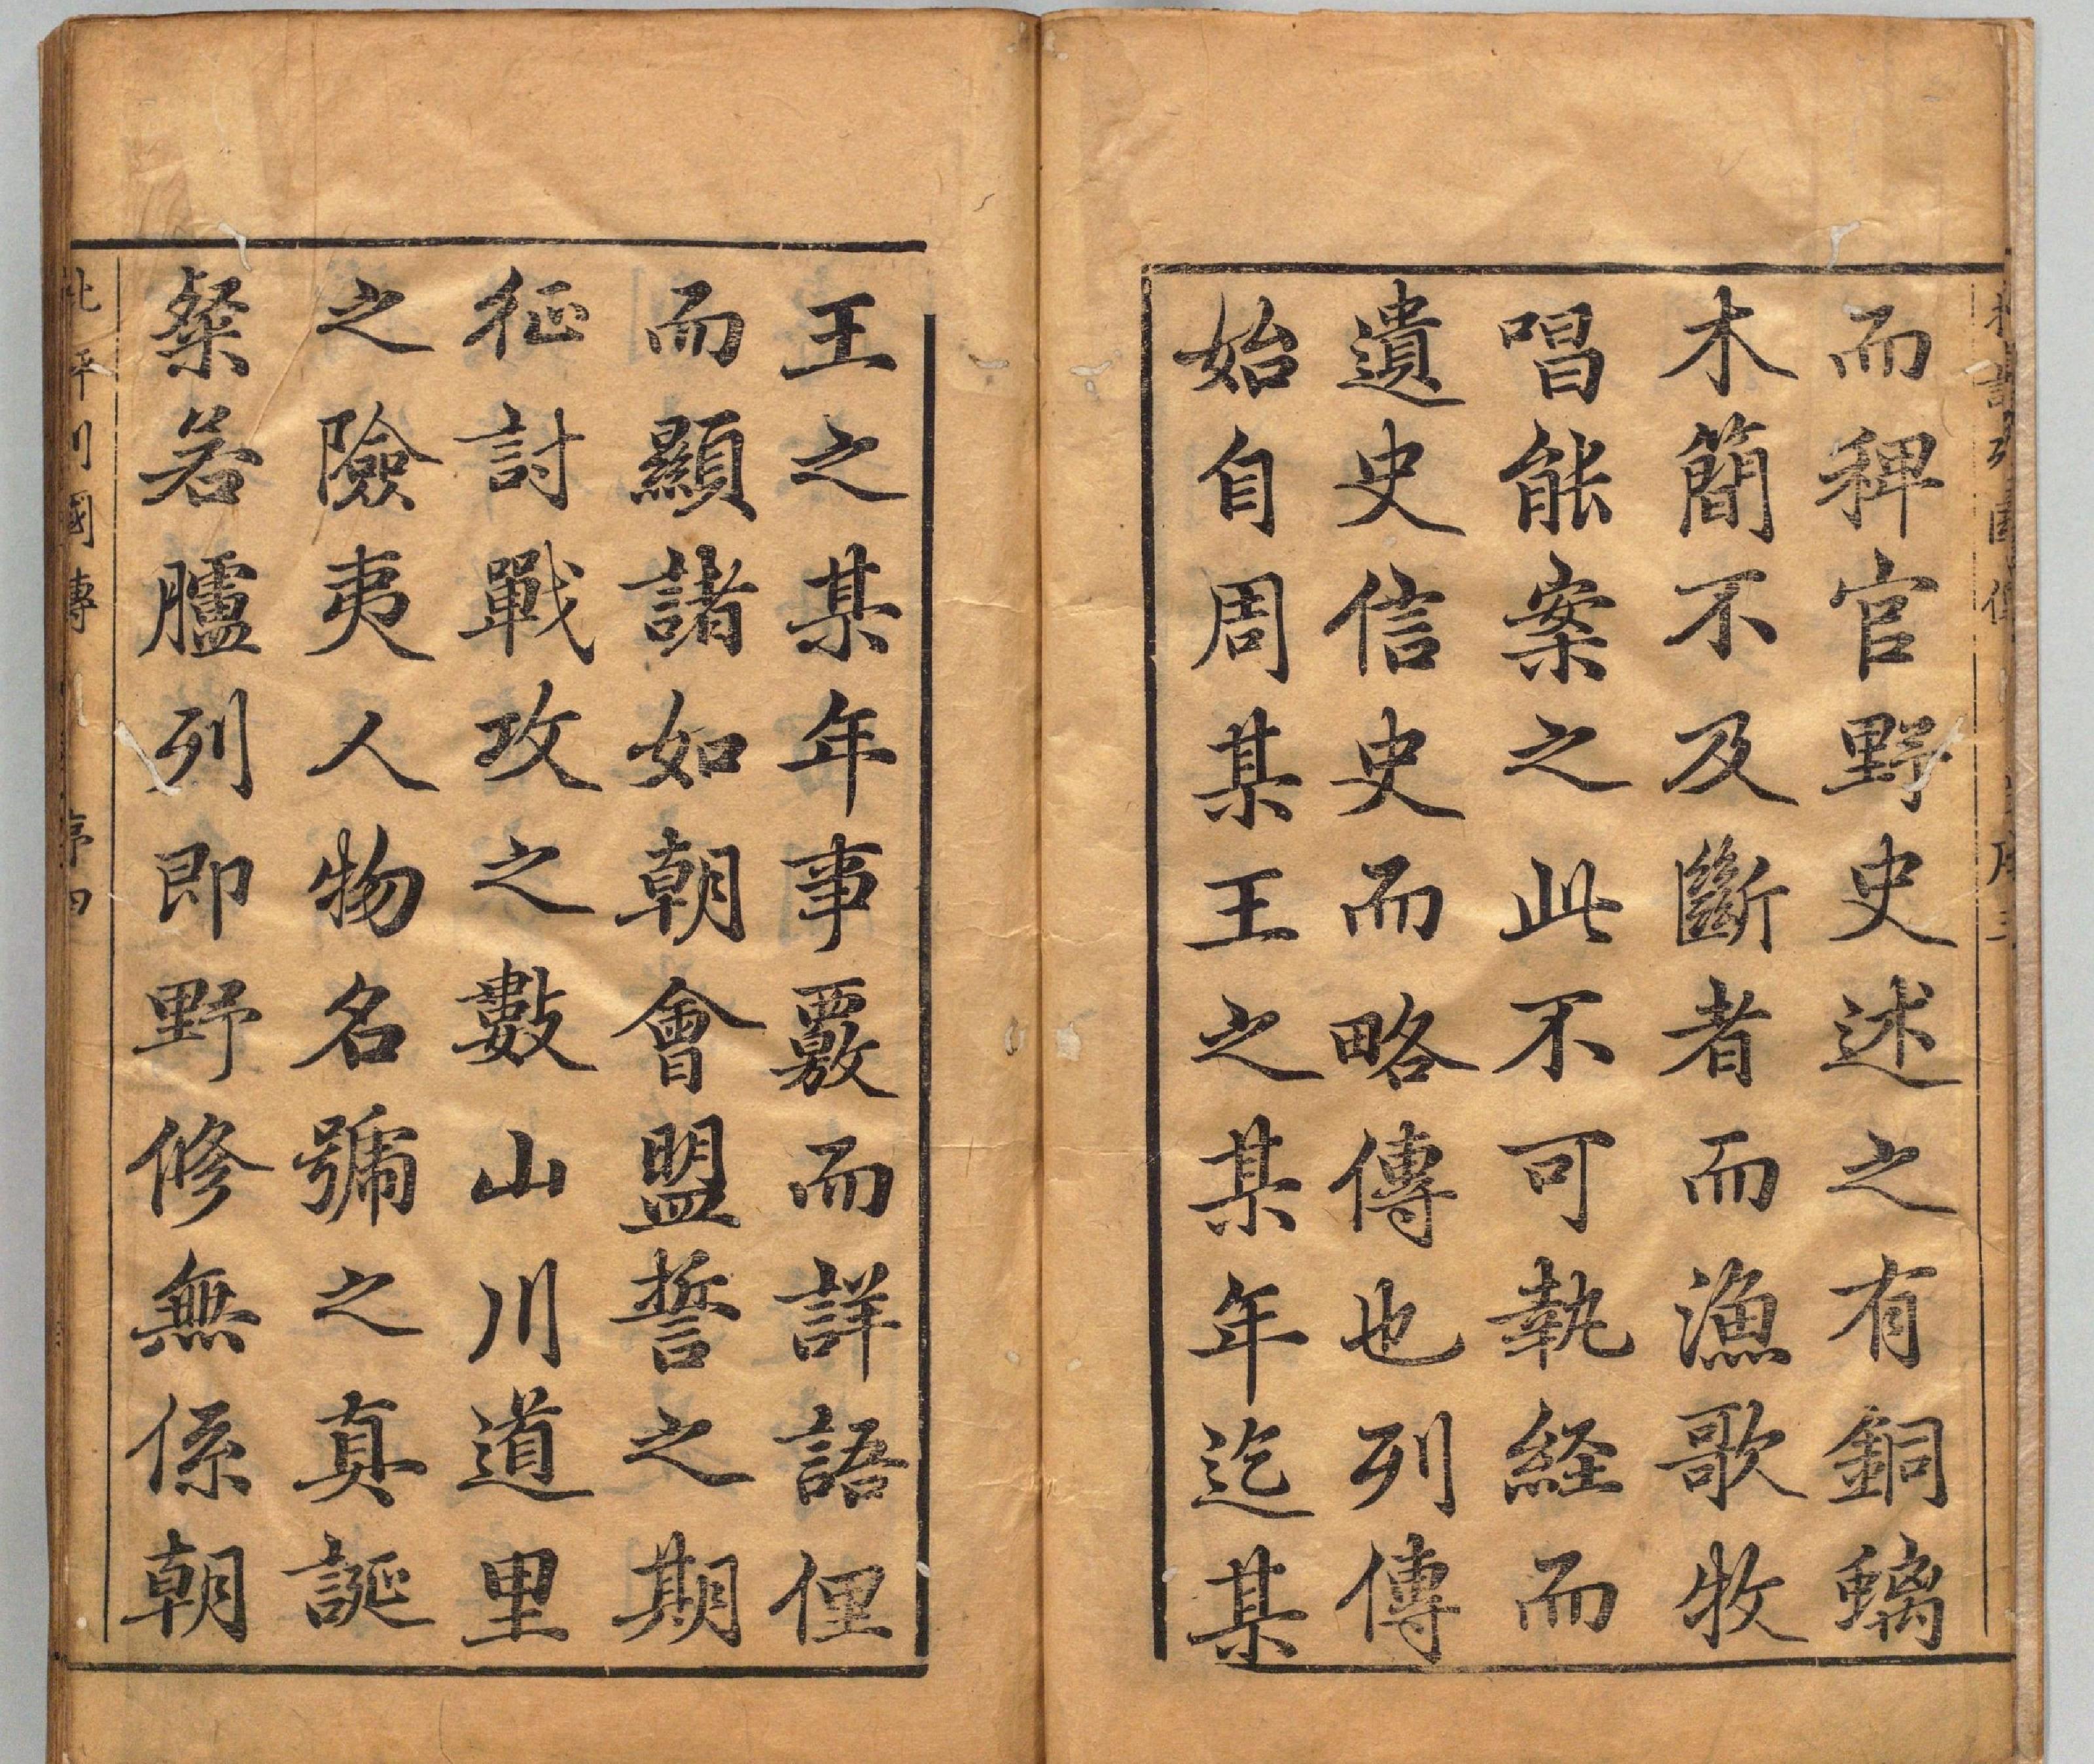 而稗官野史述之有銅螭
木簡不及斷者而漁歌牧
唱能案之此不可執経而
遺史信史而略傳也列傳
始自周某王之某年迄某
王之某年事覈而詳語俚
而顯諸如朝會盟誓之期
征討戰攻之數山川道里
之險夷人物名號之真誕
粲若臚列即野修無係朝
國傳
序四